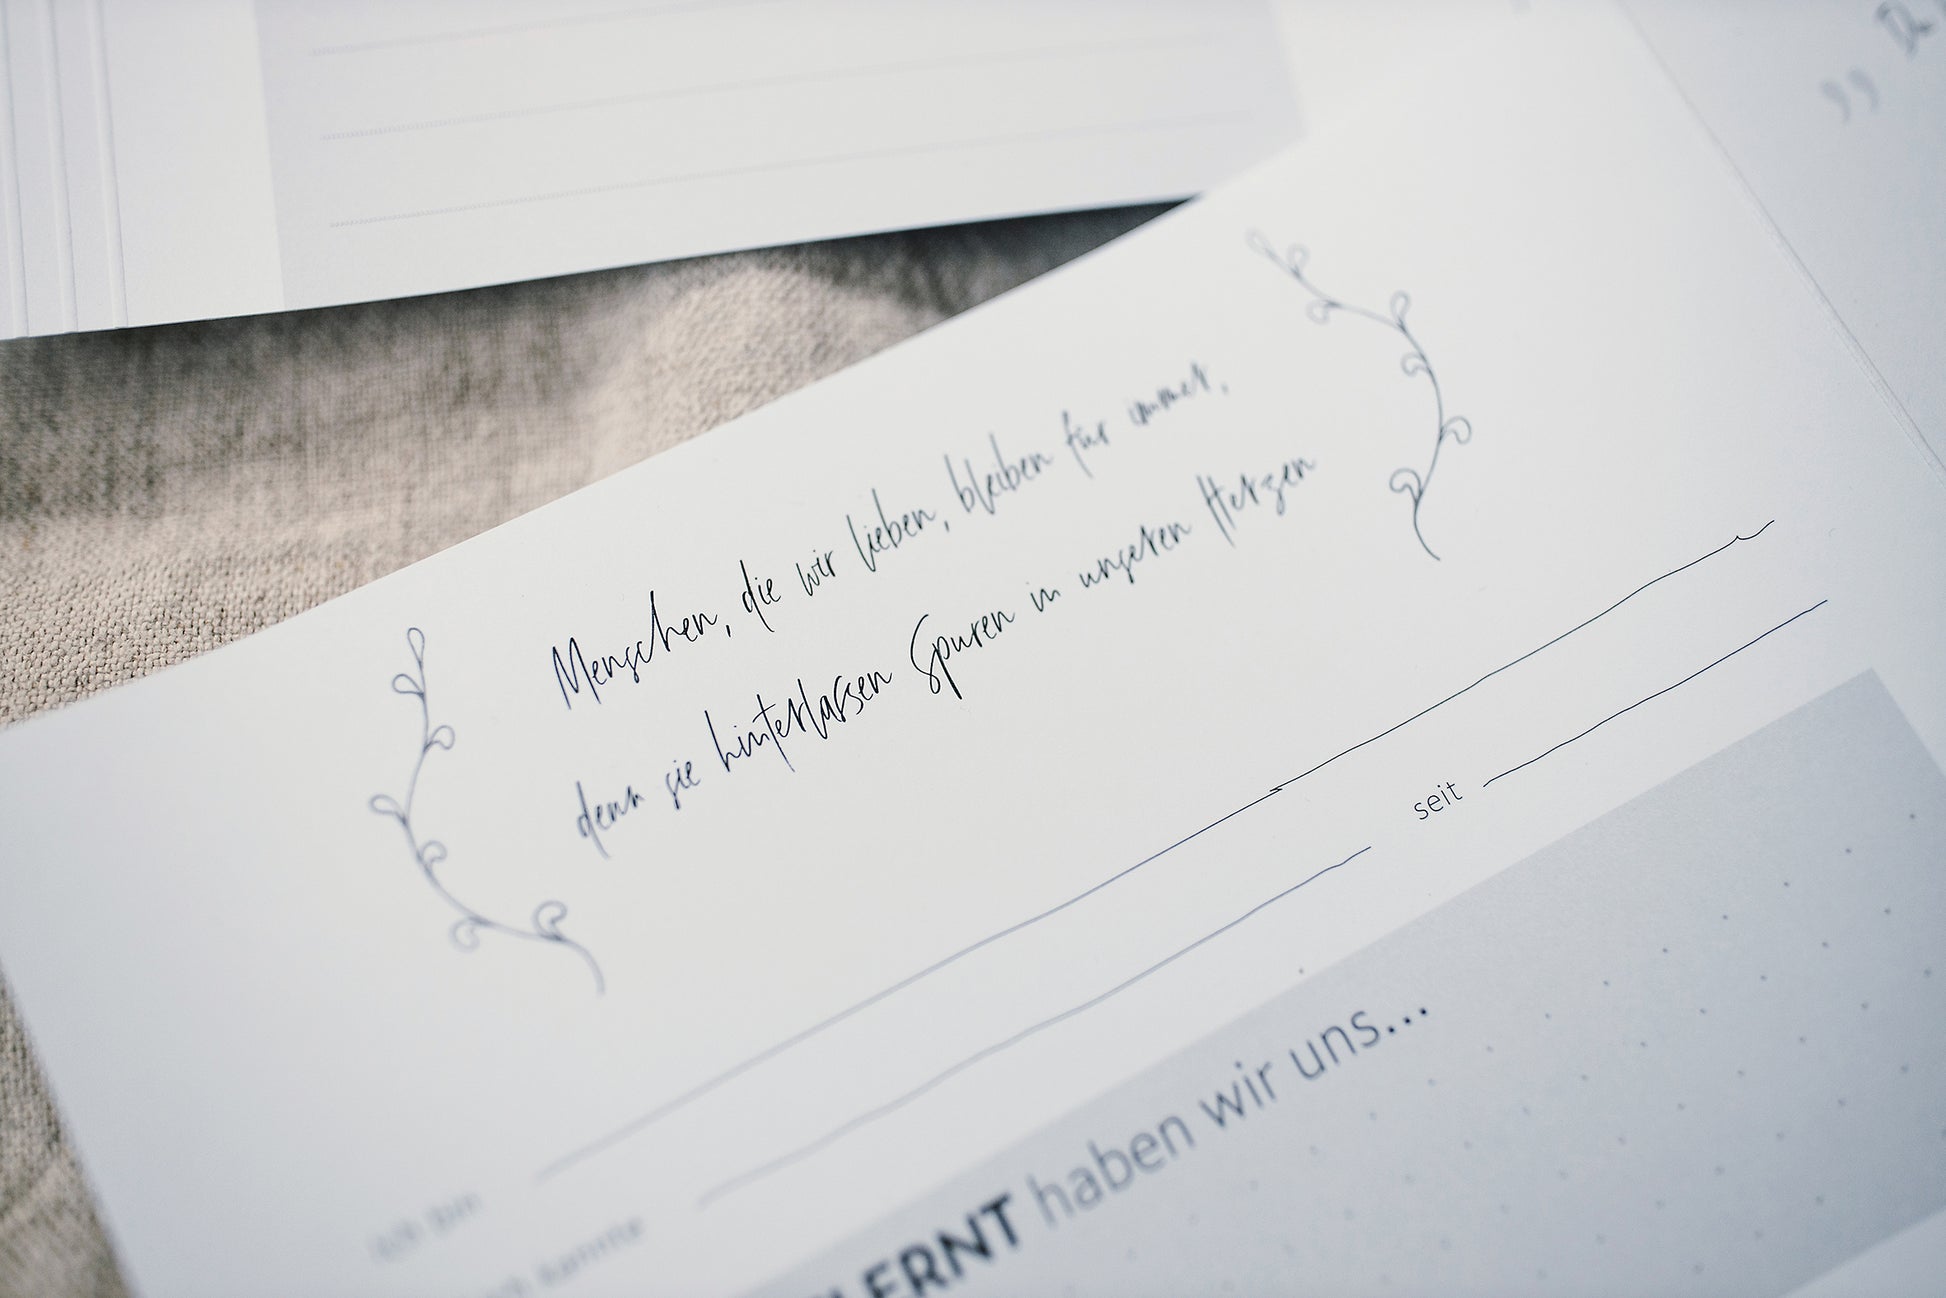 Du
Menschen, die wir lieben, bleiben für immer,
denn sie hinterlassen Spuren in unseren Herzen
Ich bin
ich kannte seit
LERNT haben wir uns...